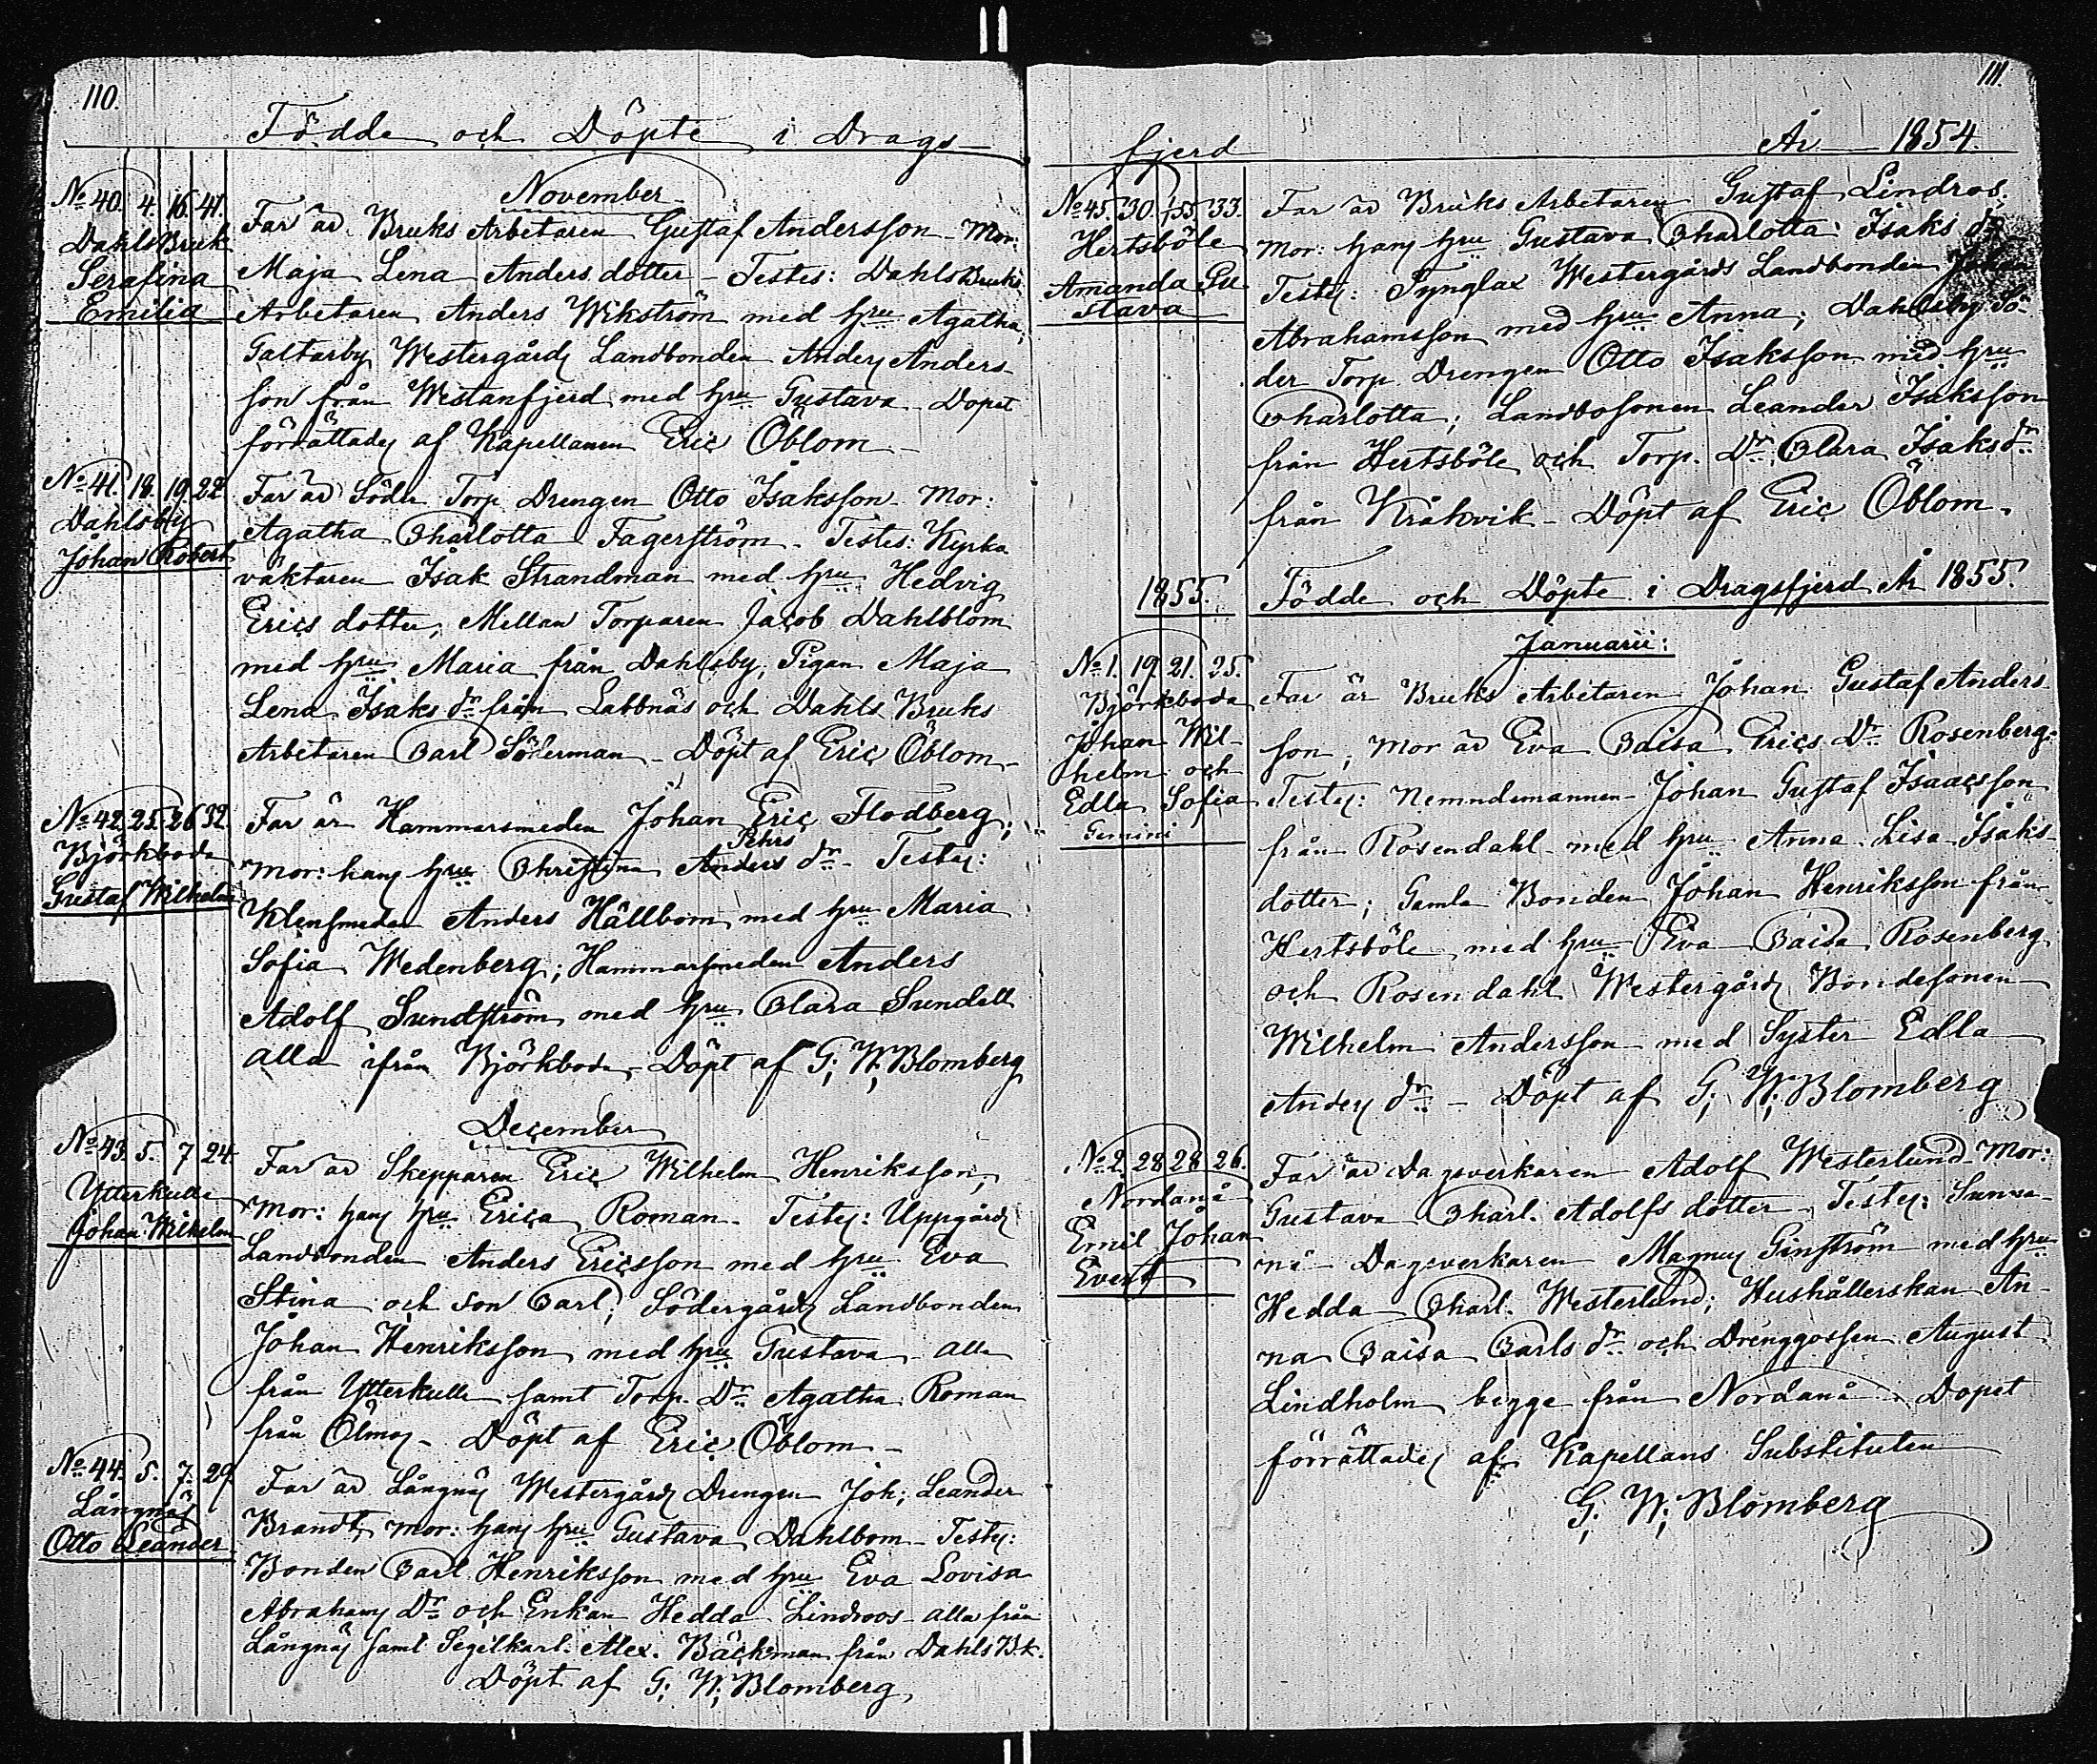 110.
Födde och Döpte i Drags-
November
No 40. 4. 16. 41.
Dahls Bruk
Serafina
Emilia
Far är Bruks Arbetaren Gustaf Andersson - Mor:
Maja Lena Anders dotter - Testes: Dahls Bruks
Arbetaren Anders Wikström med hru Agatha,
Galtarby Westergårds Landbonden Anders Anders-
son från Westanfjerd med hru Gustava - Dopet
förrättades af Kapellanen Eric Öblom -
No 41. 18. 19. 22.
Dahlsby
Johan Robert
Far är Söder Torp Drengen Otto Isaksson - Mor:
Agatha Charlotta Fagerström - Testes: Kyrko
väktaren Isak Strandman med hru Hedvig
Erics dotter, Mellan Torparen Jacob Dahlblom
med hru Maria från Dahlsby, Pigan Maja
Lena Isaks dr från Labbnäs och Dahls Bruks
Arbetaren Carl Söderman - Döpt af Eric Öblom -
No 42. 25. 26. 32.
Björkboda
Gustaf Wilhelm
Far är Hammarsmeden Johan Eric Flodberg;
Pehrs
Mor: hans hru Christina Anders dr - Testes:
Klensmeden Anders Hällbom med hru Maria
Sofia Wedenberg; Hammarsmeden Anders
Adolf Sundström med hru Clara Sundell
alla ifrån Björkboda - Döpt af G; W; Blomberg
December
No 43. 5. 7 24.
Ytterkulla
Johan Wilhelm
Far är Skepparen Eric Wilhelm Henriksson,
Mor: hans hru Erica Roman - Testes: Uppgårds
Landbonden Anders Ericsson med hru Eva
Stina och son Carl; Södergårds Landbonden
Johan Henriksson med hru Gustava - alla
från Ytterkulla samt Torp. Dr Agatha Roman
från Ölmos - Döpt af Eric Öblom -
No 44. 5. 7. 29.
Långnäs
Otto Leander
Far är Långnäs Westergårds Drengen Joh; Leander
Brandt, Mor: hans hru Gustava Dahlbom - Testes:
Bonden Carl Henriksson med hru Eva Lovisa
Abrahams Dr och Enkan Hedda Lindroos - alla från
Långnäs samt Segelkarl. Alex. Bäckman från Dahls B.k.
Döpt af G; W; Blomberg
111.
fjerd År 1854.
No 45. 30. 1/55. 33.
Hertsböle
Amanda Gu-
stava
Far är Bruks Arbetaren Gustaf Lindros;
Mor: hans hru Gustava Charlotta Isaks dr
Testes: Tynglax Westergårds Landbonden
Abrahamsson med hru Anna; Dahlsby Sö-
der Torp Drengen Otto Isaksson med hru
Charlotta; Landbosonen Leander Isaksson
från Hertsböle och Torp. Dr Clara Isaks dr
från Kråkvik - Döpt af Eric Öblom.
1855.
Födde och Döpte i Dragsfjerd År 1855.
Januarii:
No 1. 19. 21. 25.
Björkboda
Johan Wil-
helm och
Edla Sofia
Gemini
Far är Bruks Arbetaren Johan Gustaf Anders-
son, Mor är Eva Caisa Erics Dr Rosenberg:
Testes: Nemndemannen Johan Gustaf Isaacsson
från Rosendahl med hru Anna Lisa Isaks-
dotter; Gamla Bonden Johan Henriksson från
Hertsböle med hru Eva Caisa Rosenberg
och Rosendahl Westergårds Bondesonen
Wilhelm Andersson med Syster Edla
Anders dr - Döpt af G; W; Blomberg
No 2. 28. 28. 26.
Nordanå
Emil Johan
Evert
Far är Dagsverkaren Adolf Westerlund - Mor:
Gustava Charl. Adolfs dotter - Testes: Sunna-
nå Dagsverkaren Magnus Ginström med hru
Hedda Charl. Westerlund; Hushållerskan An-
na Caisa Carls dr och Drenggossen August
Lindholm begge från Nordanå - Dopet
förrättades af Kapellans Substituten
G; W; Blomberg